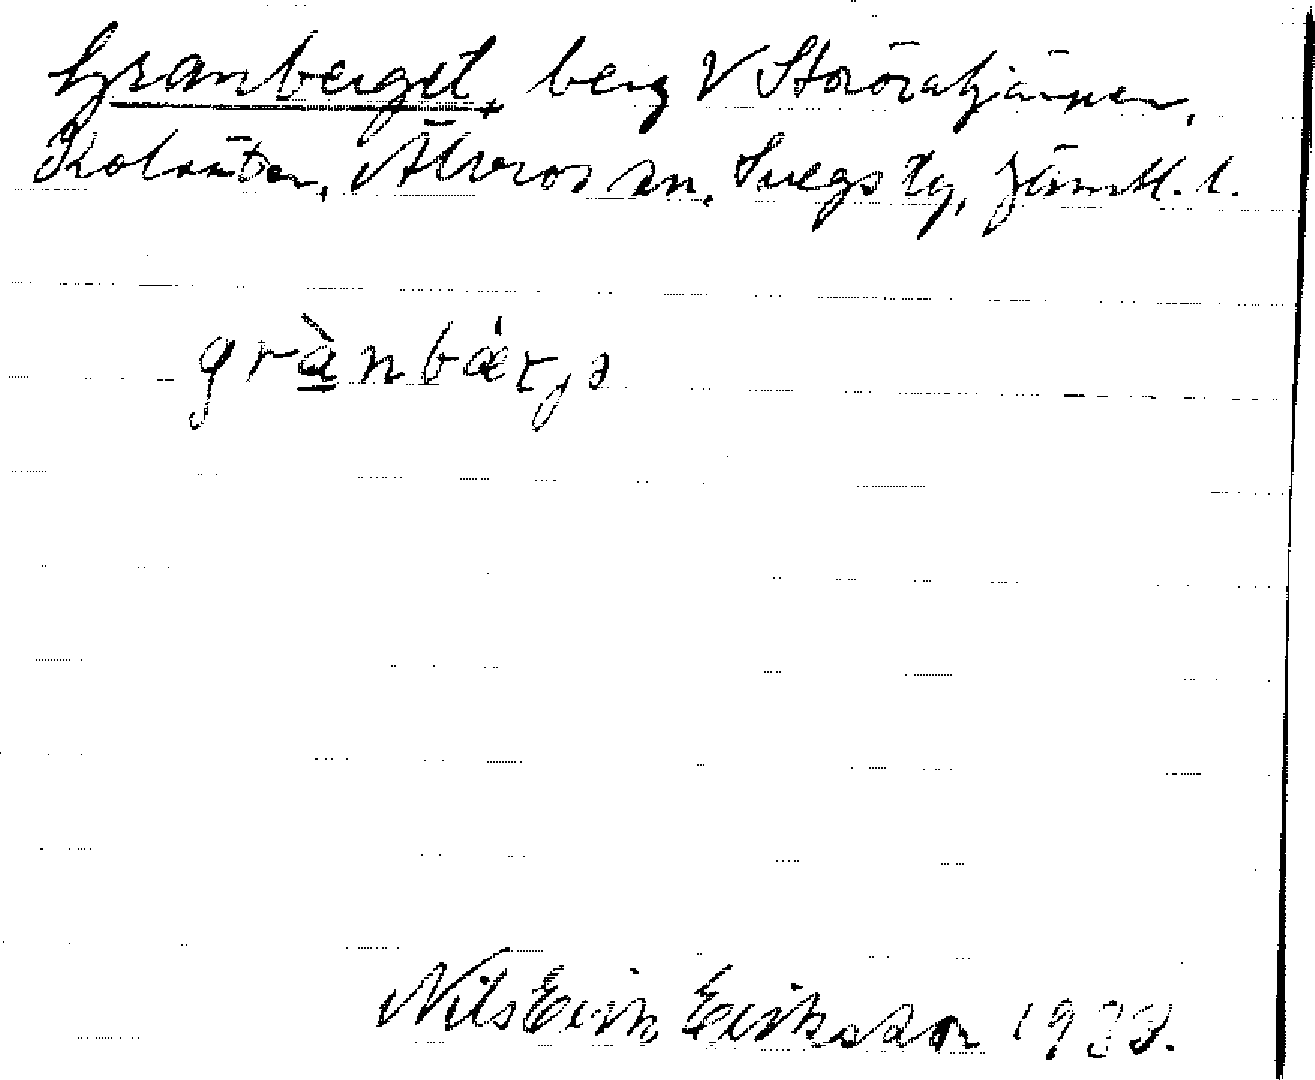 Granberget, berg V Storöratjärnen,
Kolsätter, Älvros sn, Svegs tg, Jämtl. l.
grànbǽrjə
Nils Eirik Eiriksson 1933.